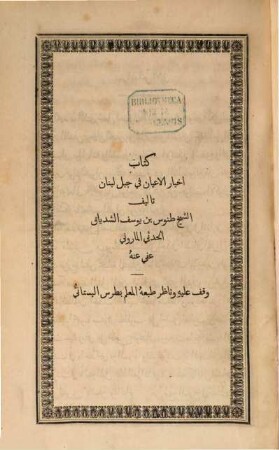 BIBLIOTHECA
REGIA
MONACENSIS
كتاب
اخبار الاعيان في جبل لبنان
تاليف
الشيخ طنوس بن يوسف الشدياق
الحدثي الماروني
عفي عنه
وقف عليه وناظر طبعهُ المعلم بطرس البستاني